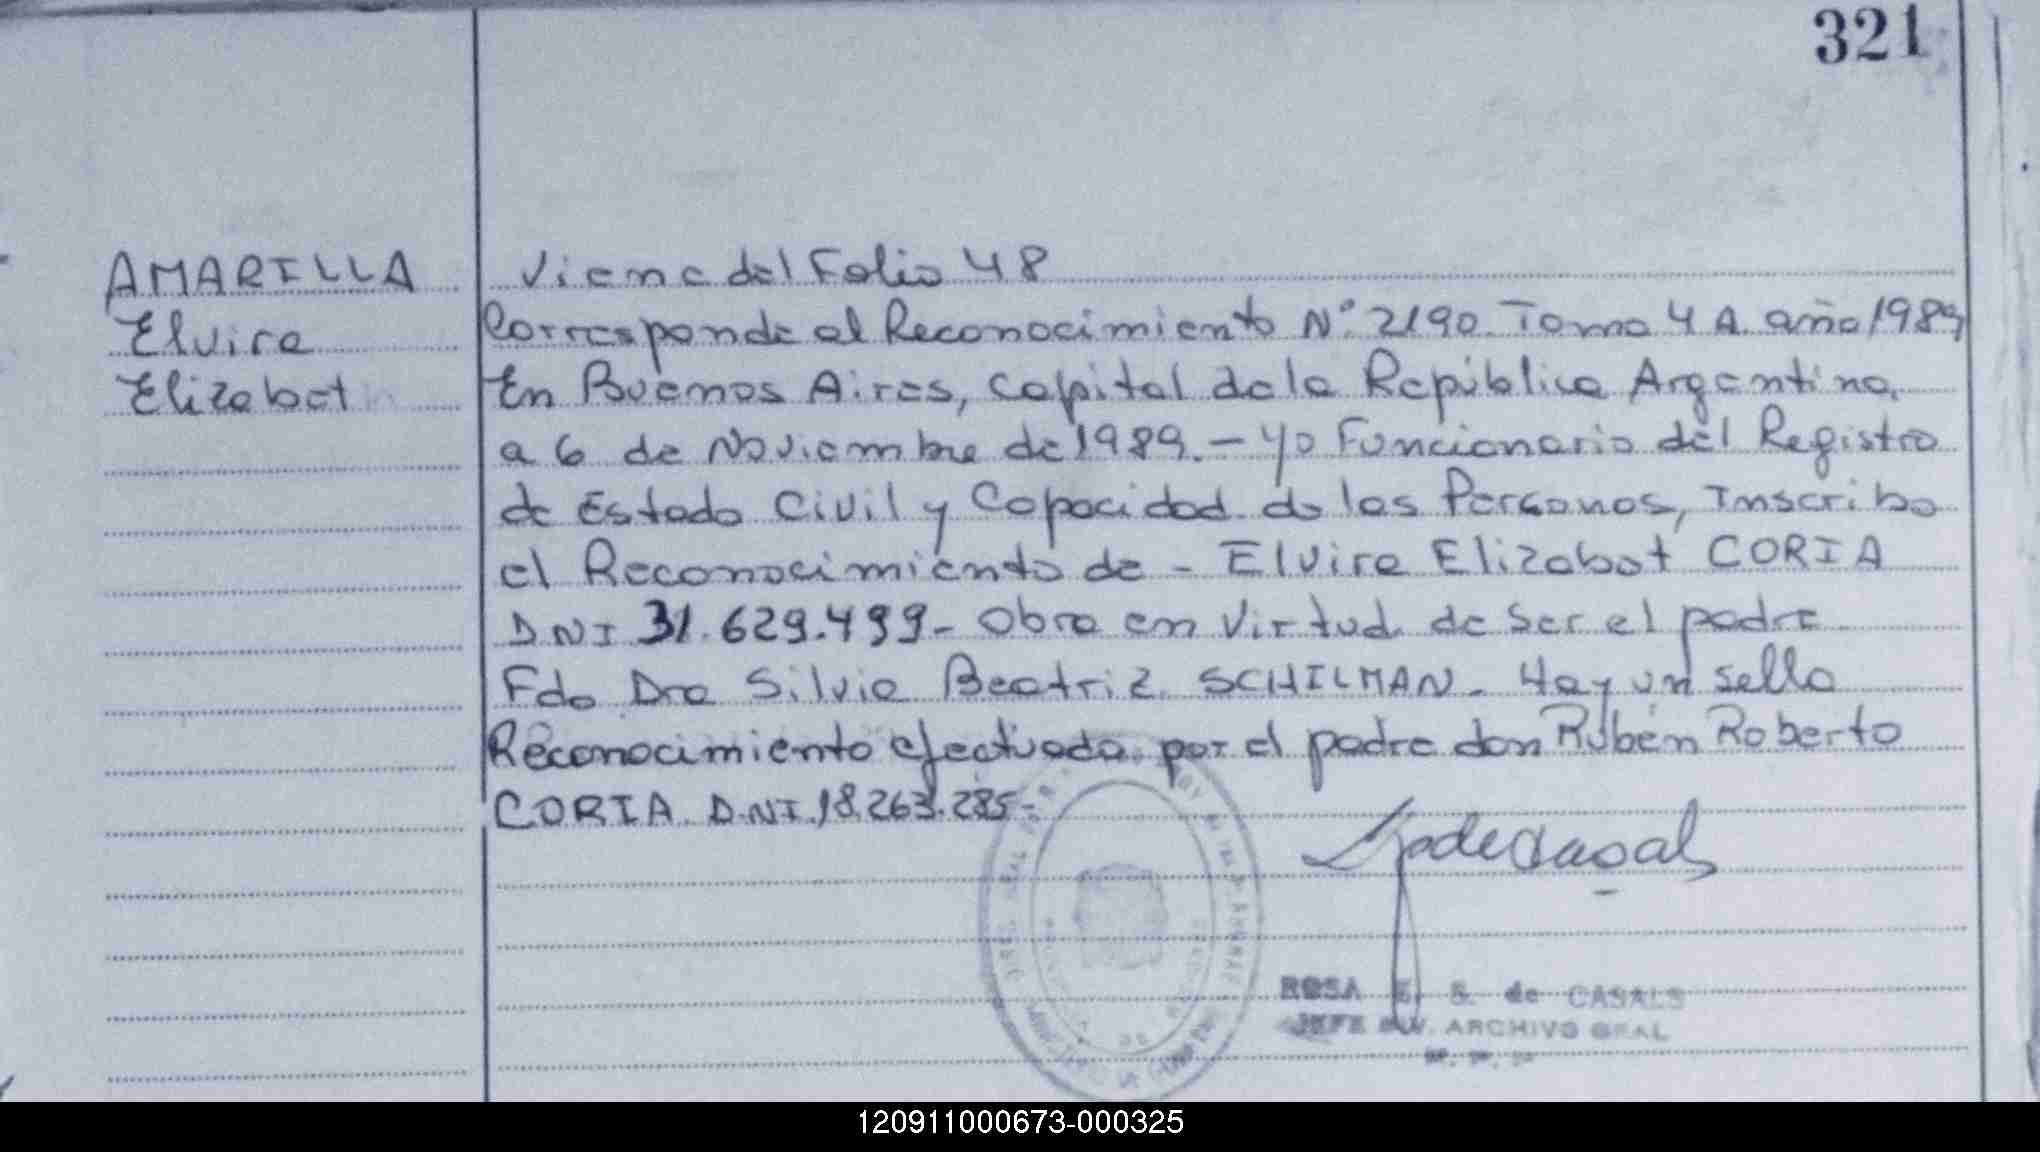 321
AMARILLA
Elvira
Elizabet
Viene del Folio 48
Corresponde al Reconocimiento N° 2190 Tomo 4 A. año 1989
En Buenos Aires, capital de la República Argentina,
a 6 de Noviembre de 1989.- yo Funcionario del Registro
de Estado Civil y Capacidad de las Personas, Inscribo
el Reconocimiento de - Elvira Elizabet CORIA
D.N.I 31.629.499- Obra en virtud de ser el padre
Fdo Dra Silvia Beatriz SCHILMAN - Hay un sello
Reconocimiento efectuado por el padre don Rubén Roberto
CORIA D.N.I. 18.263.285-
ROSA E. S. de CASALS
JEFE DIV. ARCHIVO GRAL
120911000673-000325